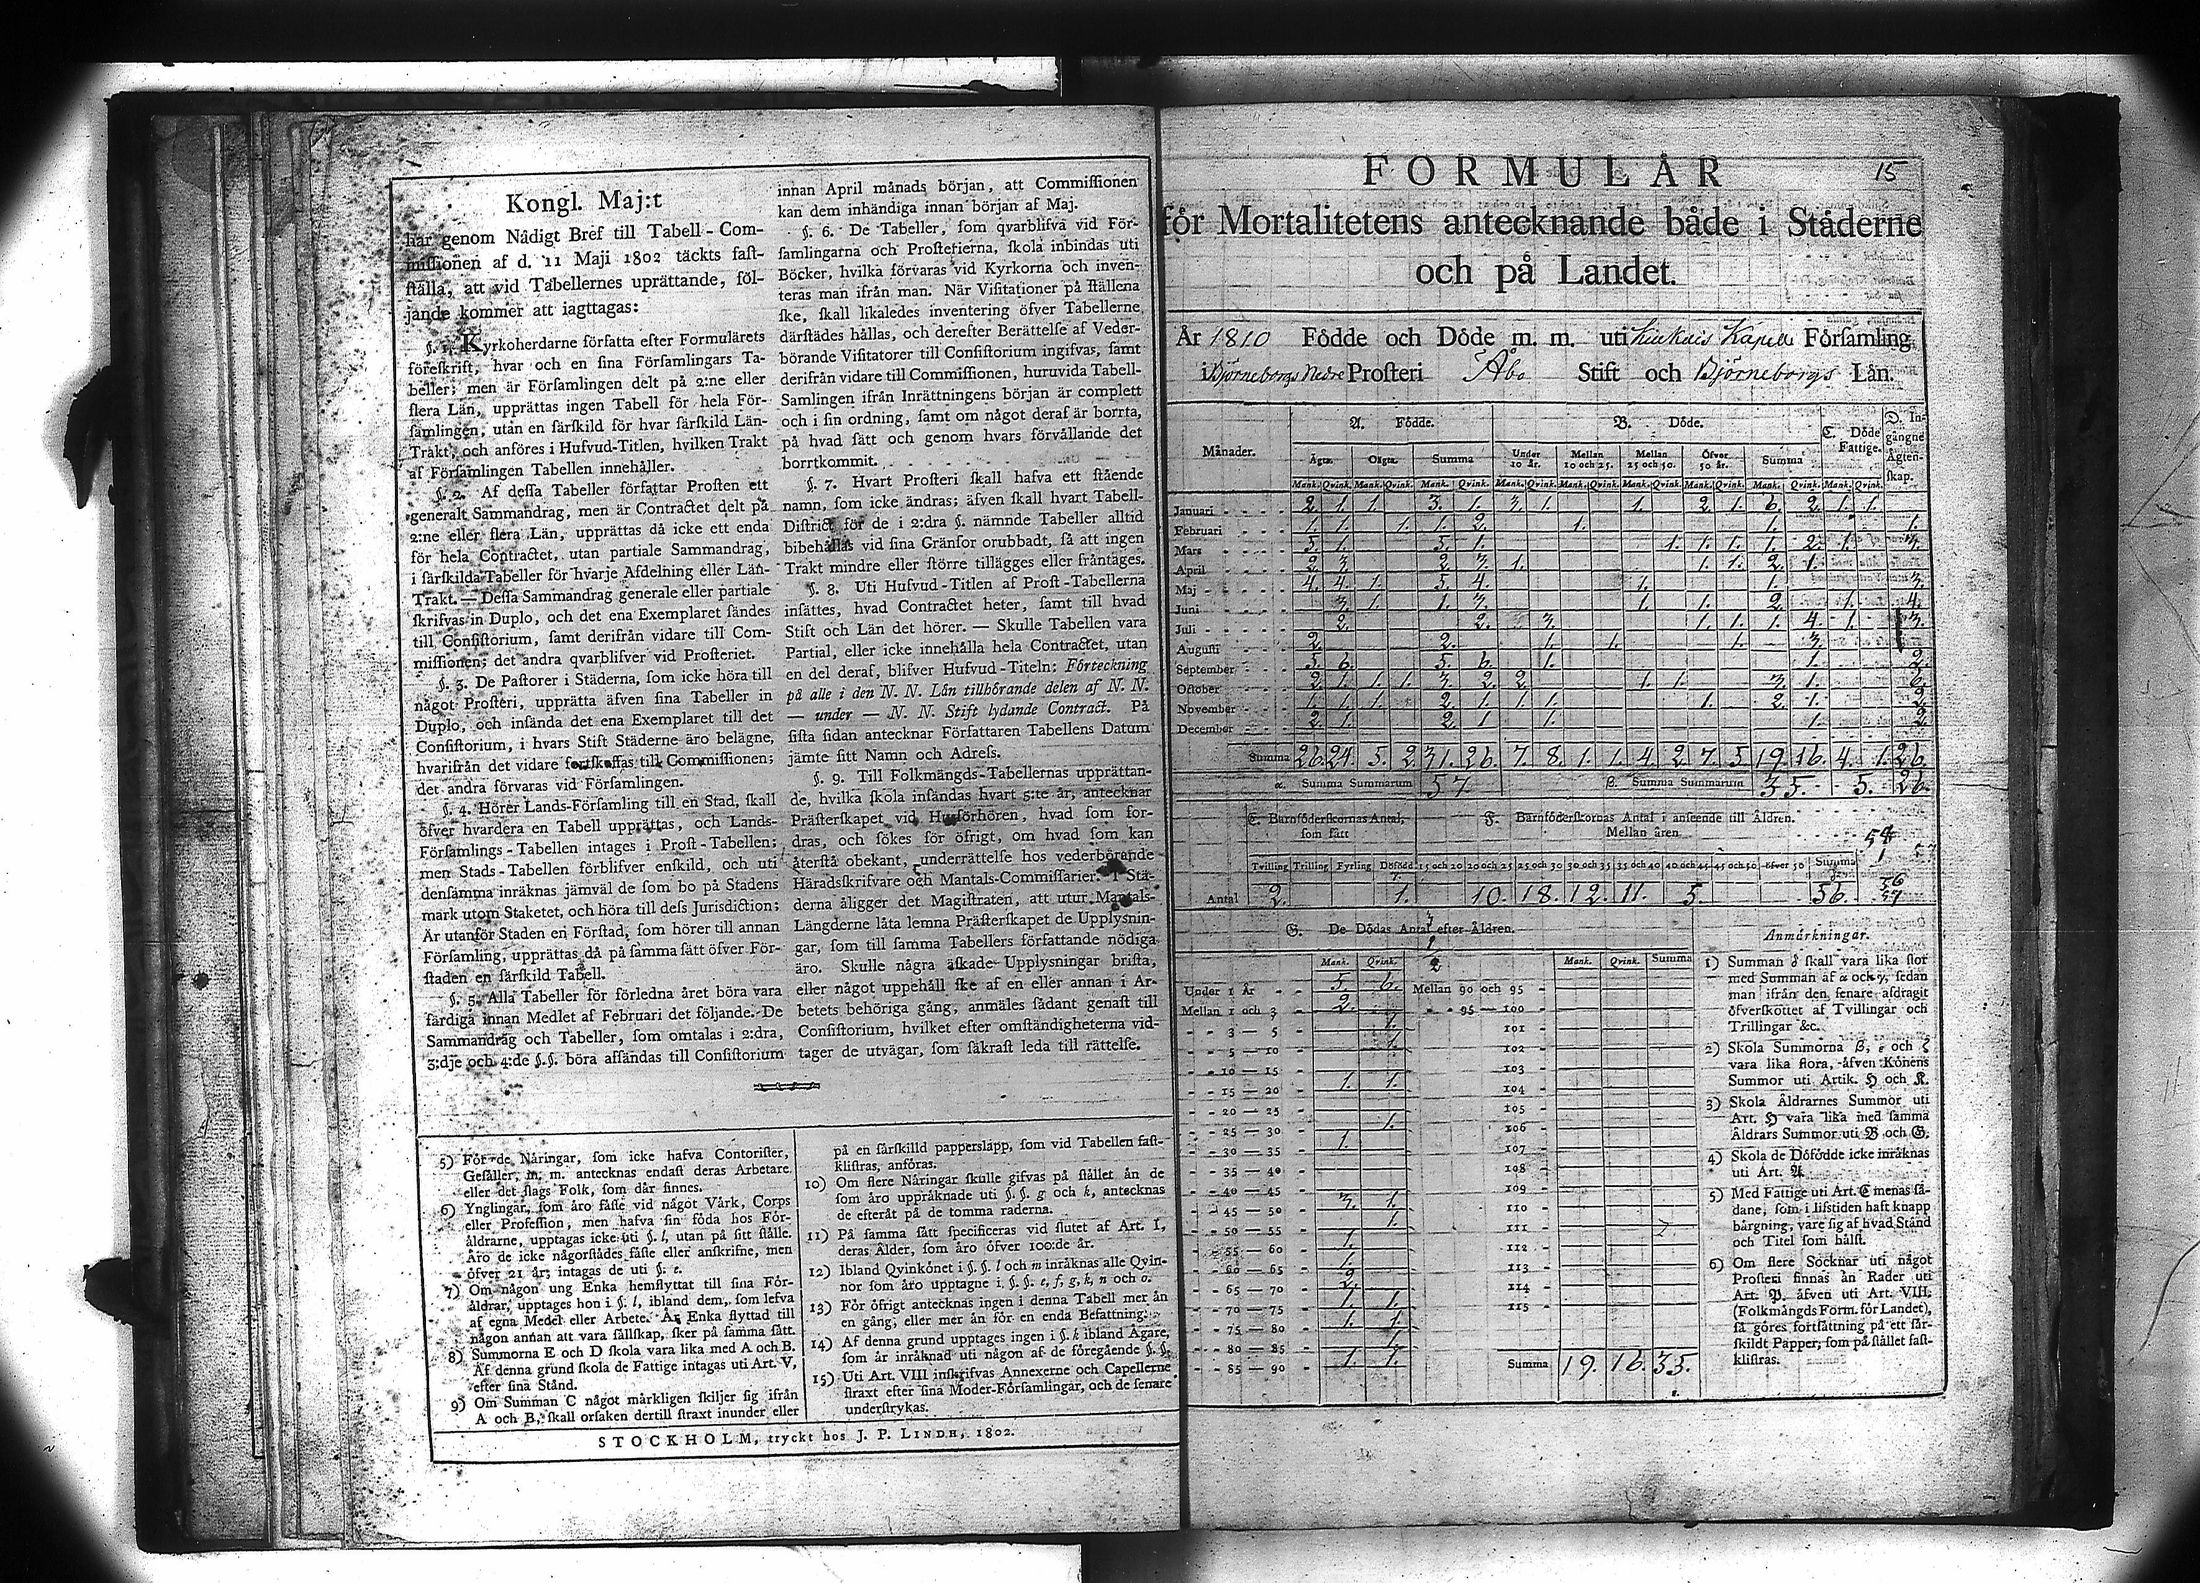 Kongl. Maj:t
har genom Nådigt Bref till Tabell-Com-
missionen af d. 11 Maji 1802 täckts fast-
ställa, att vid Tabellernes uprättande, föl-
jande kommer att iagttagas:
§. 1. Kyrkoherdarne författa efter Formulärets
föreskrift, hvar och en sina Församlingars Ta-
beller; men är Församlingen delt på 2:ne eller
flera Län, upprättas ingen Tabell för hela För-
samlingen, utan en särskild för hvar särskild Län-
Trakt, och anföres i Hufvud-Titlen, hvilken Trakt
af Församlingen Tabellen innehåller.
§. 2. Af dessa Tabeller författar Prosten ett
generalt Sammandrag, men är Contractet delt på
2:ne eller flera Län, upprättas då icke ett enda
för hela Contractet, utan partiale Sammandrag,
i särskilda Tabeller för hvarje Afdelning eller Län-
Trakt. — Dessa Sammandrag generale eller partiale
skrifvas in Duplo, och det ena Exemplaret sändes
till Consistorium, samt derifrån vidare till Com-
missionen; det andra qvarblifver vid Prosteriet.
§. 3. De Pastorer i Städerna, som icke höra till
något Prosteri, upprätta äfven sina Tabeller in
Duplo, och insända det ena Exemplaret till det
Consistorium, i hvars Stift Städerne äro belägne,
hvarifrån det vidare fortskaffas till Commissionen;
det andra förvaras vid Församlingen.
§. 4. Hörer Lands-Församling till en Stad, skall
öfver hvardera en Tabell upprättas, och Lands-
Församlings-Tabellen intages i Prost-Tabellen;
men Stads-Tabellen förblifver enskild, och uti
densamma inräknas jämväl de som bo på Stadens
mark utom Staketet, och höra till dess Jurisdiction;
Är utanför Staden en Förstad, som hörer till annan
Församling, upprättas då på samma sätt öfver För-
staden en särskild Tabell.
§. 5. Alla Tabeller för förledna året böra vara
färdiga innan Medlet af Februari det följande. De
Sammandrag och Tabeller, som omtalas i 2:dra,
3:dje och 4:de §.§. böra afsändas till Consistorium
innan April månads början, att Commissionen
kan dem inhändiga innan början af Maj.
§. 6. De Tabeller, som qvarblifva vid För-
samlingarna och Prosterierna, skola inbindas uti
Böcker, hvilka förvaras vid Kyrkorna och inven-
teras man ifrån man. När Visitationer på ställena
ske, skall likaledes inventering öfver Tabellerne
därstädes hållas, och derefter Berättelse af Veder-
börande Visitatorer till Consistorium ingifvas, samt
derifrån vidare till Commissionen, huruvida Tabell-
Samlingen ifrån Inrättningens början är complett
och i sin ordning, samt om något deraf är borrta,
på hvad sätt och genom hvars förvållande det
borrtkommit.
§. 7. Hvart Prosteri skall hafva ett stående
namn, som icke ändras; äfven skall hvart Tabell-
District för de i 2:dra §. nämnde Tabeller alltid
bibehållas vid sina Gränsor orubbadt, så att ingen
Trakt mindre eller större tillägges eller fråntages.
§. 8. Uti Hufvud-Titlen af Prost-Tabellerna
insättes, hvad Contractet heter, samt till hvad
Stift och Län det hörer. — Skulle Tabellen vara
Partial, eller icke innehålla hela Contractet, utan
en del deraf, blifver Hufvud-Titeln: Förteckning
på alle i den N. N. Län tillhörande delen af N. N.
— under — N. N. Stift lydande Contract. På
sista sidan antecknar Författaren Tabellens Datum
jämte sitt Namn och Adress.
§. 9. Till Folkmängds-Tabellernas upprättan-
de, hvilka skola insändas hvart 5:te år, antecknar
Prästerskapet vid Husförhören, hvad som for-
dras, och sökes för öfrigt, om hvad som kan
återstå obekant, underrättelse hos vederbörande
Häradsskrifvare och Mantals-Commissarier. I Stä-
derna åligger det Magistraten, att utur Mantals-
Längderne låta lemna Prästerskapet de Upplysnin-
gar, som till samma Tabellers författande nödiga
äro. Skulle några äskade Upplysningar brista,
eller något uppehåll ske af en eller annan i Ar-
betets behöriga gång, anmäles sådant genast till
Consistorium, hvilket efter omständigheterna vid-
tager de utvägar, som säkrast leda till rättelse.
5) För de Näringar, som icke hafva Contorister,
Gesäller, m. m. antecknas endast deras Arbetare
eller det slags Folk, som där finnes.
6) Ynglingar, som äro fäste vid något Värk, Corps
eller Profession, men hafva sin föda hos För-
äldrarne, upptagas icke uti §. l, utan på sitt ställe.
Äro de icke någorstädes fäste eller anskrifne, men
öfver 21 år, intagas de uti §. e.
7) Om någon ung Enka hemflyttat till sina För-
äldrar, upptages hon i §. l, ibland dem, som lefva
af egna Medel eller Arbete. Är Enka flyttad till
någon annan att vara sällskap, sker på samma sätt.
8) Summorna E och D skola vara lika med A och B.
Af denna grund skola de Fattige intagas uti Art. V,
efter sina Stånd.
9) Om Summan C något märkligen skiljer sig ifrån
A och B, skall orsaken dertill straxt inunder eller
på en särskilld papperslapp, som vid Tabellen fast-
klistras, anföras.
10) Om flere Näringar skulle gifvas på stället än de
som äro uppräknade uti §. §. g och k, antecknas
de efteråt på de tomma raderna.
11) På samma sätt specificeras vid slutet af Art. I,
deras Ålder, som äro öfver 100:de år.
12) Ibland Qvinkönet i §. §. l och m inräknas alle Qvin-
nor som äro upptagne i §. §. e, f, g, k, n och o.
13) För öfrigt antecknas ingen i denna Tabell mer än
en gång, eller mer än för en enda Befattning.
14) Af denna grund upptages ingen i §. k ibland Ägare,
som är inräknad uti någon af de föregående §. §.
15) Uti Art. VIII inskrifvas Annexerne och Capellerne
straxt efter sina Moder-Församlingar, och de senare
understrykas.
STOCKHOLM, tryckt hos J. P. LINDH, 1802.
15
FORMULÄR
för Mortalitetens antecknande både i Städerne
och på Landet.
År 1810 Födde och Döde m. m. uti Kiukais Kapell Församling
i Björneborgs Nedre Prosteri Åbo Stift och Björneborgs Län.
Månader. A. Födde. B. Döde. C. Döde Fattige. D. Ingångne Ägtenskap.
Ägta. Oägta. Summa Under 10 år. Mellan 10 och 25. Mellan 25 och 50. Öfver 50 år. Summa
Mank. Qvink. Mank. Qvink. Mank. Qvink. Mank. Qvink. Mank. Qvink. Mank. Qvink. Mank. Qvink. Mank. Qvink. Mank. Qvink.
Januari 2. 1. 1. 3. 1. 3. 1. 1. 2. 1. 6. 2. 1. 1.
Februari 1. 1. 1. 1. 2. 1. 1. 1.
Mars 5. 1. 5. 1. 1. 1. 1. 1. 2. 1. 3.
April 2. 3. 2. 3. 1. 1. 1. 2. 1.
Maj 4. 4. 1. 5. 4. 1. 1. 3.
Juni 3. 1. 1. 3. 1. 1. 2. 1. 4.
Juli 2. 2. 3. 1. 1. 1. 4. 1. 3.
Augusti 2. 2. 1. 1. 1. 3.
September 5. 6. 5. 6. 1. 1. 2.
October 2. 1. 1. 1. 3. 2. 2. 1. 1. 3. 1. 6.
November 1. 1. 1. 2. 1. 1. 1. 1. 2. 1. 2.
December 2. 1. 2. 1 1. 1. 2
Summa 26. 24. 5. 2. 31. 26. 7. 8. 1. 1. 4. 2. 7. 5. 19. 16. 4. 1. 26.
α. Summa Summarum 57 β. Summa Summarum 35. 5. 26.
E. Barnföderskornas Antal, som fått F. Barnföderskornas Antal i anseende till Åldren.
Mellan åren
54
1 57
Tvilling Trilling Fyrling Dödfödd 15 och 20 20 och 25 25 och 30 30 och 35 35 och 40 40 och 45 45 och 50 öfver 50 Summa
56
57
Antal 2. 1. 10. 18. 12. 11. 5. 56.
G. De Dödas Antal efter Åldren.
Mank. Qvink. Mank. Qvink. Summa
Under 1 År 5. 6. Mellan 90 och 95
Mellan 1 och 3 2. 95 — 100
3 — 5 1. 101
5 — 10 1. 102
10 — 15 103
15 — 20 1. 1. 104
20 — 25 105
25 — 30 1. 106
30 — 35 1. 107
35 — 40 108
40 — 45 109
45 — 50 3. 1. 110
50 — 55 1. 111
55 — 60 1. 112
60 — 65 1. 113
65 — 70 2. 114
70 — 75 1. 1. 115
75 — 80 1. 1
80 — 85 1.
85 — 90 1. 1. Summa 19. 16. 35.
Anmärkningar.
1) Summan δ skall vara lika stor
med Summan af α och γ, sedan
man ifrån den senare afdragit
öfverskottet af Tvillingar och
Trillingar &c.
2) Skola Summorna β, ε och ζ
vara lika stora, äfven Könens
Summor uti Artik. H och K.
3) Skola Åldrarnes Summor uti
Art. H vara lika med samma
Åldrars Summor uti B och G.
4) Skola de Döfödde icke inräknas
uti Art. A.
5) Med Fattige uti Art. C menas så-
dane, som i lifstiden haft knapp
bärgning, vare sig af hvad Stånd
och Titel som hälst.
6) Om flere Socknar uti något
Prosteri finnas än Rader uti
Art. P. äfven uti Art. VIII.
(Folkmängds Form. för Landet),
så göres fortsättning på ett sär-
skildt Papper, som på stället fast-
klistras.